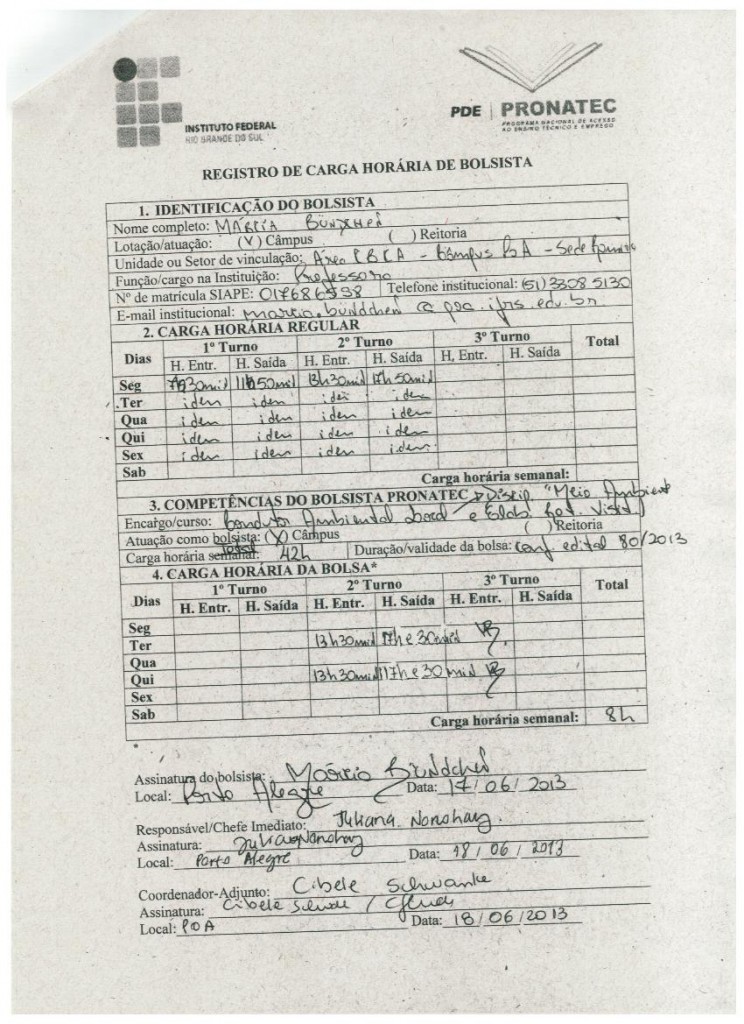 INSTITUTO FEDERAL
RIO GRANDE DO SUL
PDE | PRONATEC
PROGRAMA NACIONAL DE ACESSO
AO ENSINO TÉCNICO E EMPREGO
REGISTRO DE CARGA HORÁRIA DE BOLSISTA
1. IDENTIFICAÇÃO DO BOLSISTA
Nome completo: MÁRCIA BÜNDCHEN
Lotação/atuação: (X) Câmpus ( ) Reitoria
Unidade ou Setor de vinculação: Área - Câmpus POA - Sede
Função/cargo na Instituição: Professora
Nº de matrícula SIAPE: Telefone institucional: (51) 3308 5130
E-mail institucional: marcia.bündchen @ poa.ifrs.edu.br
2. CARGA HORÁRIA REGULAR
Dias 1º Turno 2º Turno 3º Turno Total
H. Entr. H. Saída H. Entr. H. Saída H, Entr. H. Saída
Seg 7h30min 11h50min 13h30min 17h50min
Ter idem idem idem idem
Qua idem idem idem idem
Qui idem idem idem idem
Sex idem idem idem idem
Sab
Carga horária semanal:
3. COMPETÊNCIAS DO BOLSISTA PRONATEC Discip. "Meio Ambient
Encargo/curso: Condutor Ambiental Local e Elab.
Atuação como bolsista: (X) Câmpus ( ) Reitoria
Total
Carga horária semanal: 42h Duração/validade da bolsa: conf edital 80/2013
4. CARGA HORÁRIA DA BOLSA*
Dias 1º Turno 2º Turno 3º Turno Total
H. Entr. H. Saída H. Entr. H. Saída H. Entr. H. Saída
Seg
Ter 13h30min 17h e 30min
Qua
Qui 13h30min 17h e 30 min
Sex
Sab
Carga horária semanal: 8h
Assinatura do bolsista: Márcia Bündchen
Local: Porto Alegre Data: 17/06/2013
Responsável/Chefe Imediato: Juliana Nonohay.
Assinatura: Juliana Nonohay
Local: Porto Alegre Data: 18/06/2013
Coordenador-Adjunto: Cibele Schwanke
Assinatura: Cibele
Local: POA Data: 18/06/2013